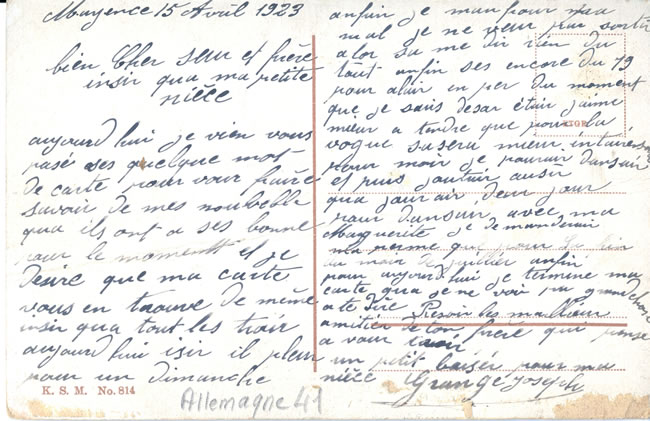 Mayence 15 Avril 1923
bien Cher seur et frère
insir qua ma petite
nièce
aujourd hui je vien vous
pasé ses quelque mot
de carte pour vour faire
savoir de mes nouvelle
qua ils ont a ses bonne
pour le moment et je
desire que ma carte
vous en trouve de même
insir qua tout les trair
aujourd hui isir il pleu
pour un dimanche
K. S. M. No. 814
Allemagne 41
anfin je man pour ma
mal je ne veur pas sortir
alor sa me dir rien du
tout anfin ses encore du 79
pour alair en per du moment
que je sais desar étair jaime
mieur a tendre que pour la
vogue sa sera mieur intairesan
pour moir je pourair dansair
et puis jautair ausir
qua jour air deur jour
pour dansair avec ma
Marguerite je demanderair
ma perme que pour
au moir de juillier anfin
pour aujourd hui je termine ma
carte qua je ne voir pa granchose
a te dire Resoir les mailleur
amitier de ton frère qui panse
a vour troir
un petit baisér pour ma
nièce Grangé Joseph